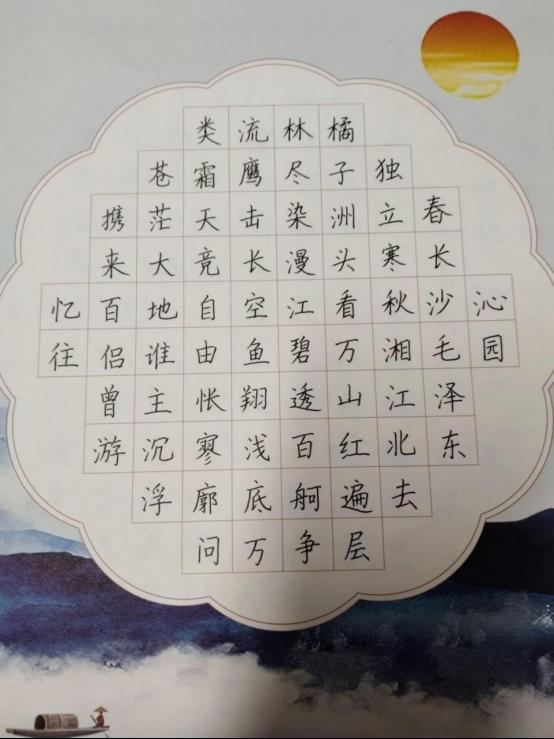 沁园
春长沙毛泽东
独立寒秋湘江北去
橘子洲头看万山红遍层
林尽染漫江碧透百舸争
流鹰击长空鱼翔浅底万
类霜天竞自由怅寥廓问
苍茫大地谁主沉浮
携来百侣曾游
忆往